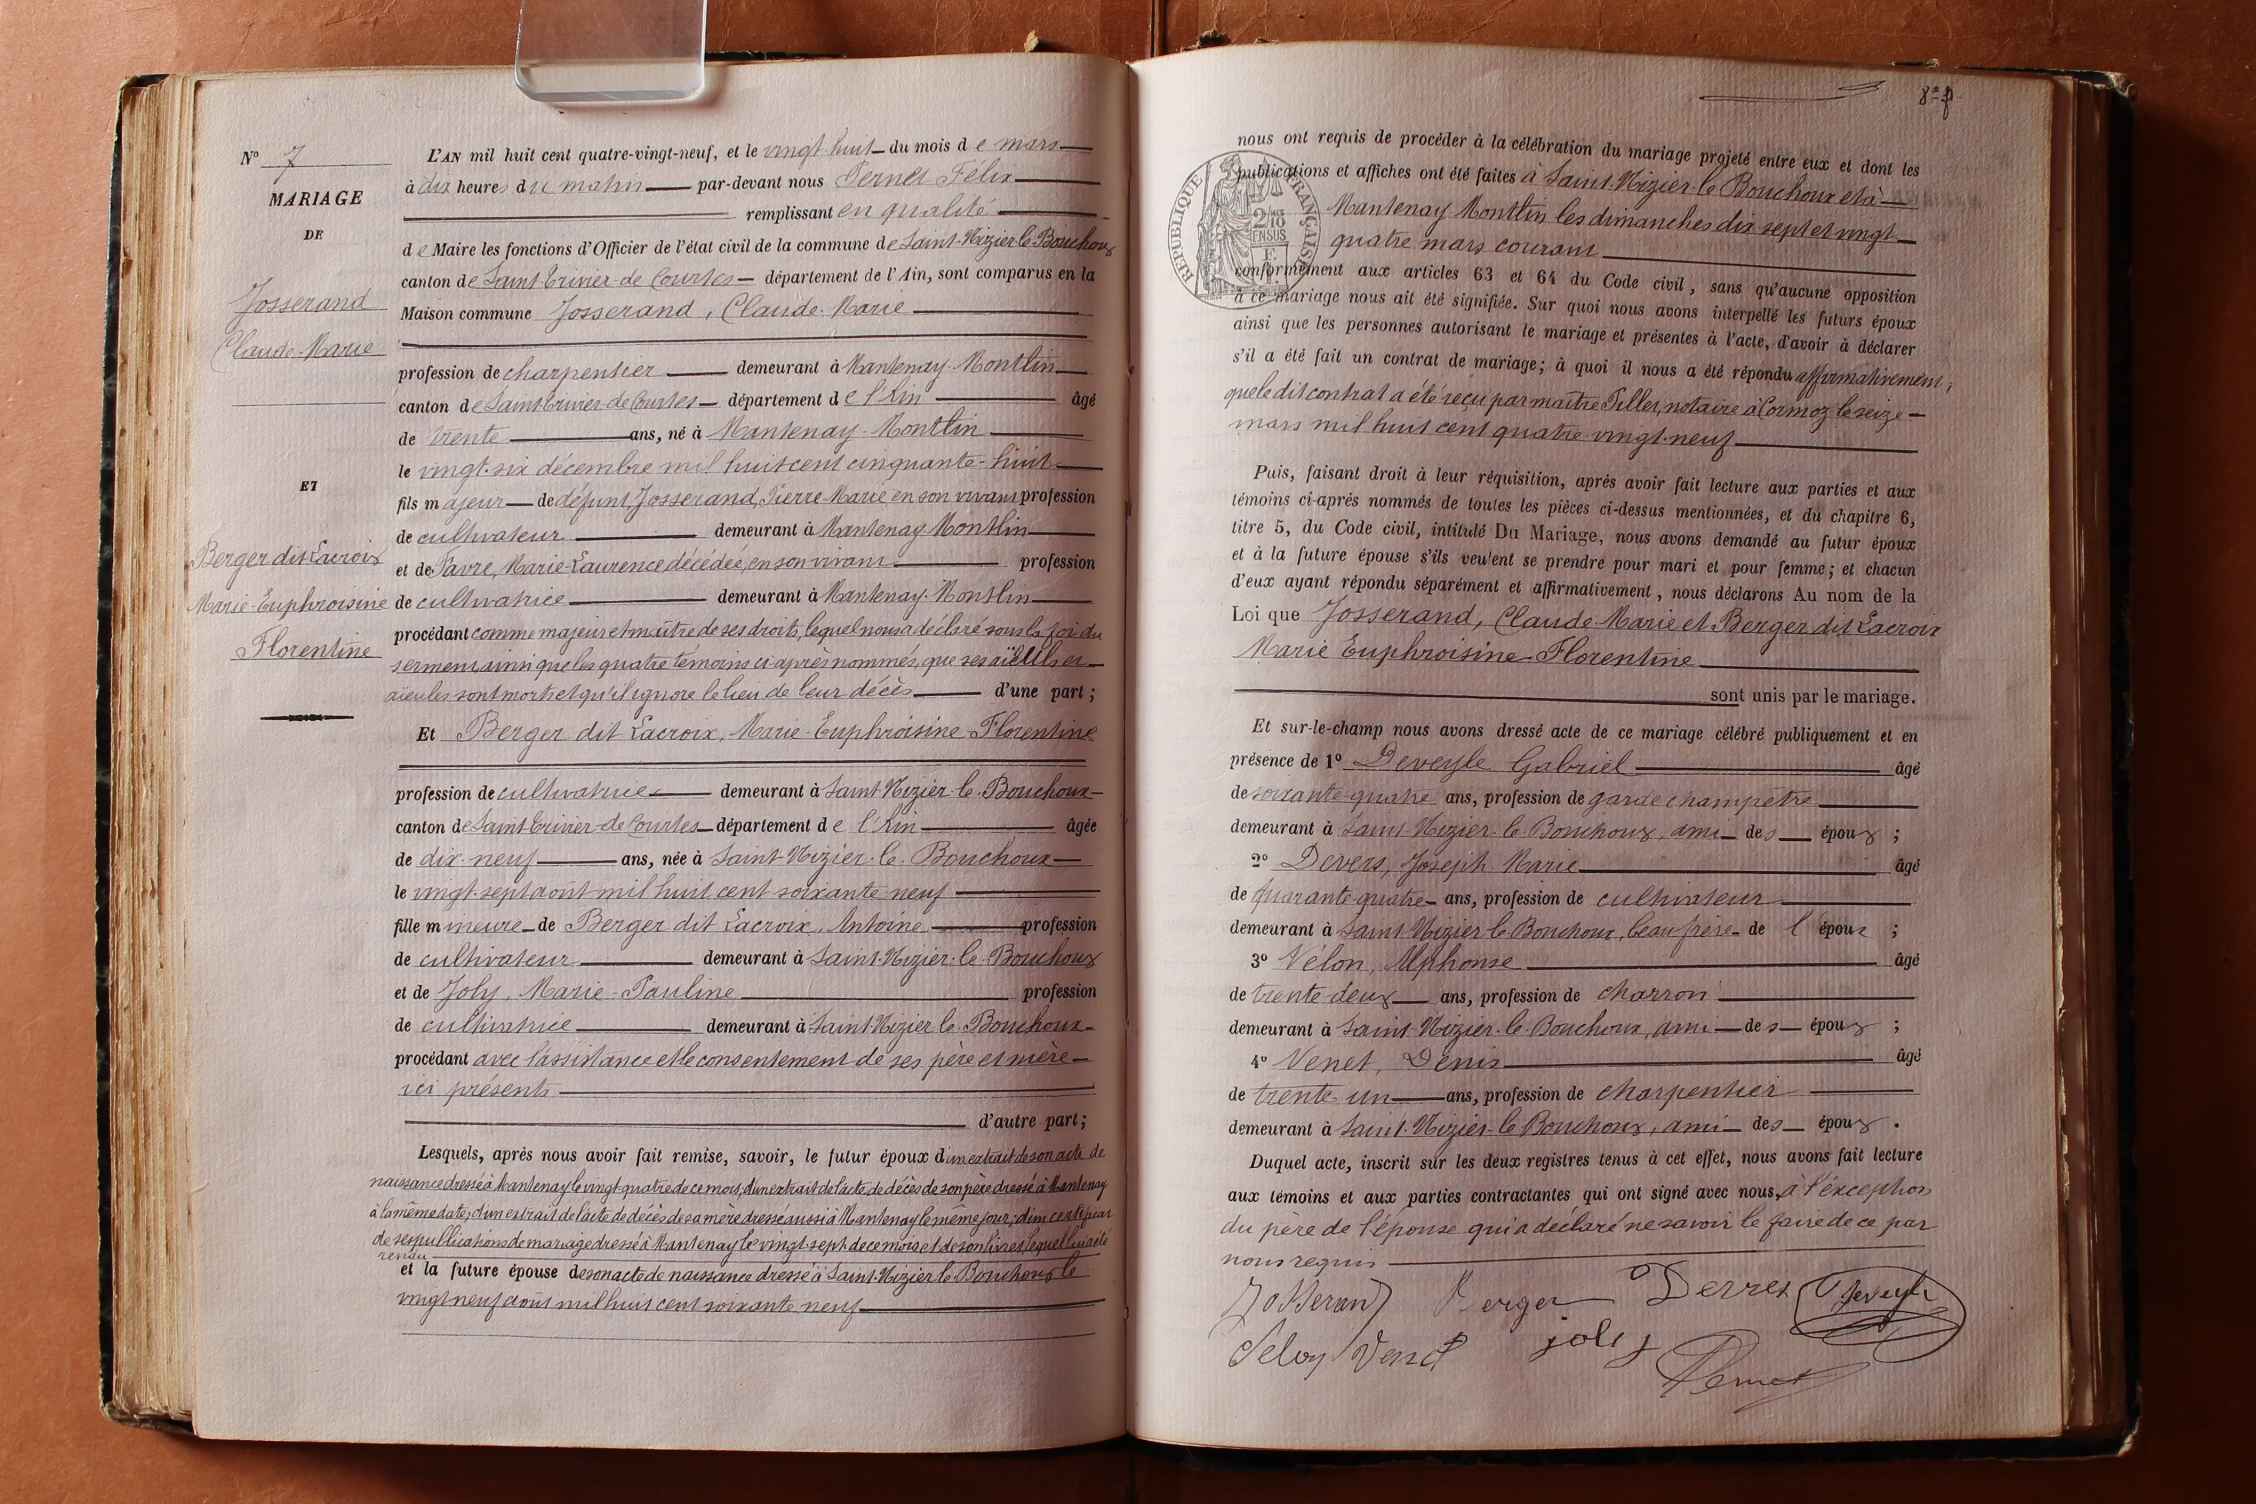 N° 7
MARIAGE
DE
Josserand
Claude-Marie
ET
Berger dit Lacroix
Marie-Euphroisine
Florentine
L'AN mil huit cent quatre-vingt-neuf, et le vingt huit du mois de mars
à dix heures du matin par-devant nous Pernet Félix
remplissant en qualité
de Maire les fonctions d'Officier de l'état civil de la commune de Saint-Nizier-le-Bouchoux
canton de Saint-Trivier-de-Courtes département de l'Ain, sont comparus en la
Maison commune Josserand, Claude-Marie
profession de charpentier demeurant à Mantenay-Montlin
canton de Saint-Trivier-de-Courtes département de l'Ain âgé
de trente ans, né à Mantenay-Montlin
le vingt-six décembre mil huit cent cinquante-huit
fils majeur de défunt Josserand, Pierre-Marie en son vivant profession
de cultivateur demeurant à Mantenay Montlin
et de Favre, Marie-Laurence décédée, en son vivant profession
de cultivatrice demeurant à Mantenay-Montlin
procédant comme majeur et maître de ses droits, lequel nous a déclaré sous la foi du
serment ainsi que les quatre témoins ci-après nommés, que ses aïeuls et
aïeules sont morts et qu'il ignore le lieu de leur décès d'une part ;
Et Berger dit Lacroix, Marie-Euphroisine-Florentine
profession de cultivatrice demeurant à Saint-Nizier-le-Bouchoux
canton de Saint-Trivier-de-Courtes département de l'Ain âgée
de dix-neuf ans, née à Saint-Nizier-le-Bouchoux
le vingt-sept août mil huit cent soixante neuf
fille mineure de Berger dit Lacroix, Antoine profession
de cultivateur demeurant à Saint-Nizier-le-Bouchoux
et de Joly, Marie-Pauline profession
de cultivatrice demeurant à Saint-Nizier-le-Bouchoux
procédant avec l'assistance et le consentement de ses père et mère
ici présents
d'autre part ;
Lesquels, après nous avoir fait remise, savoir, le futur époux d'un extrait de son acte de
naissance dressé à Mantenay le vingt-quatre de ce mois, d'un extrait de l'acte de décès de son père dressé à Mantenay
à la même date ; d'un extrait de l'acte de décès de sa mère dressé aussi à Mantenay le même jour ; d'un certificat
de ses publications de mariage dressé à Mantenay le vingt-sept de ce mois et de son livret, lequel lui a été
rendu
et la future épouse de son acte de naissance dressé à Saint-Nizier-le-Bouchoux le
vingt neuf août mil huit cent soixante neuf
nous ont requis de procéder à la célébration du mariage projeté entre eux et dont les
publications et affiches ont été faites à Saint-Nizier-le-Bouchoux et à
Mantenay Montlin les dimanches dix sept et vingt
quatre mars courant
RÉPUBLIQUE FRANÇAISE
2/10 EN SUS
conformément aux articles 63 et 64 du Code civil, sans qu'aucune opposition
à ce mariage nous ait été signifiée. Sur quoi nous avons interpellé les futurs époux
ainsi que les personnes autorisant le mariage et présentes à l'acte, d'avoir à déclarer
s'il a été fait un contrat de mariage ; à quoi il nous a été répondu affirmativement,
que le dit contrat a été reçu par maître Piller, notaire à Cormoz le seize
mars mil huit cent quatre-vingt-neuf
Puis, faisant droit à leur réquisition, après avoir fait lecture aux parties et aux
témoins ci-après nommés de toutes les pièces ci-dessus mentionnées, et du chapitre 6,
titre 5, du Code civil, intitulé Du Mariage, nous avons demandé au futur époux
et à la future épouse s'ils veulent se prendre pour mari et pour femme ; et chacun
d'eux ayant répondu séparément et affirmativement, nous déclarons Au nom de la
Loi que Josserand, Claude-Marie et Berger dit Lacroix
Marie Euphroisine-Florentine
sont unis par le mariage.
Et sur-le-champ nous avons dressé acte de ce mariage célébré publiquement et en
présence de 1° Deveyle Gabriel âgé
de soixante-quatre ans, profession de garde champêtre
demeurant à Saint-Nizier-le-Bouchoux, ami des époux ;
2° Devers, Joseph Marie âgé
de quarante-quatre ans, profession de cultivateur
demeurant à Saint-Nizier-le-Bouchoux, beau frère de l'époux ;
3° Vélon, Alphonse âgé
de trente-deux ans, profession de charron
demeurant à Saint-Nizier-le-Bouchoux, ami des époux ;
4° Venet, Denis âgé
de trente-un ans, profession de charpentier
demeurant à Saint-Nizier-le-Bouchoux, ami des époux.
Duquel acte, inscrit sur les deux registres tenus à cet effet, nous avons fait lecture
aux témoins et aux parties contractantes qui ont signé avec nous, à l'exception
du père de l'épouse qui a déclaré ne savoir le faire de ce par
nous requis
Josserand Berger Deveyle
Venet joly Pernet